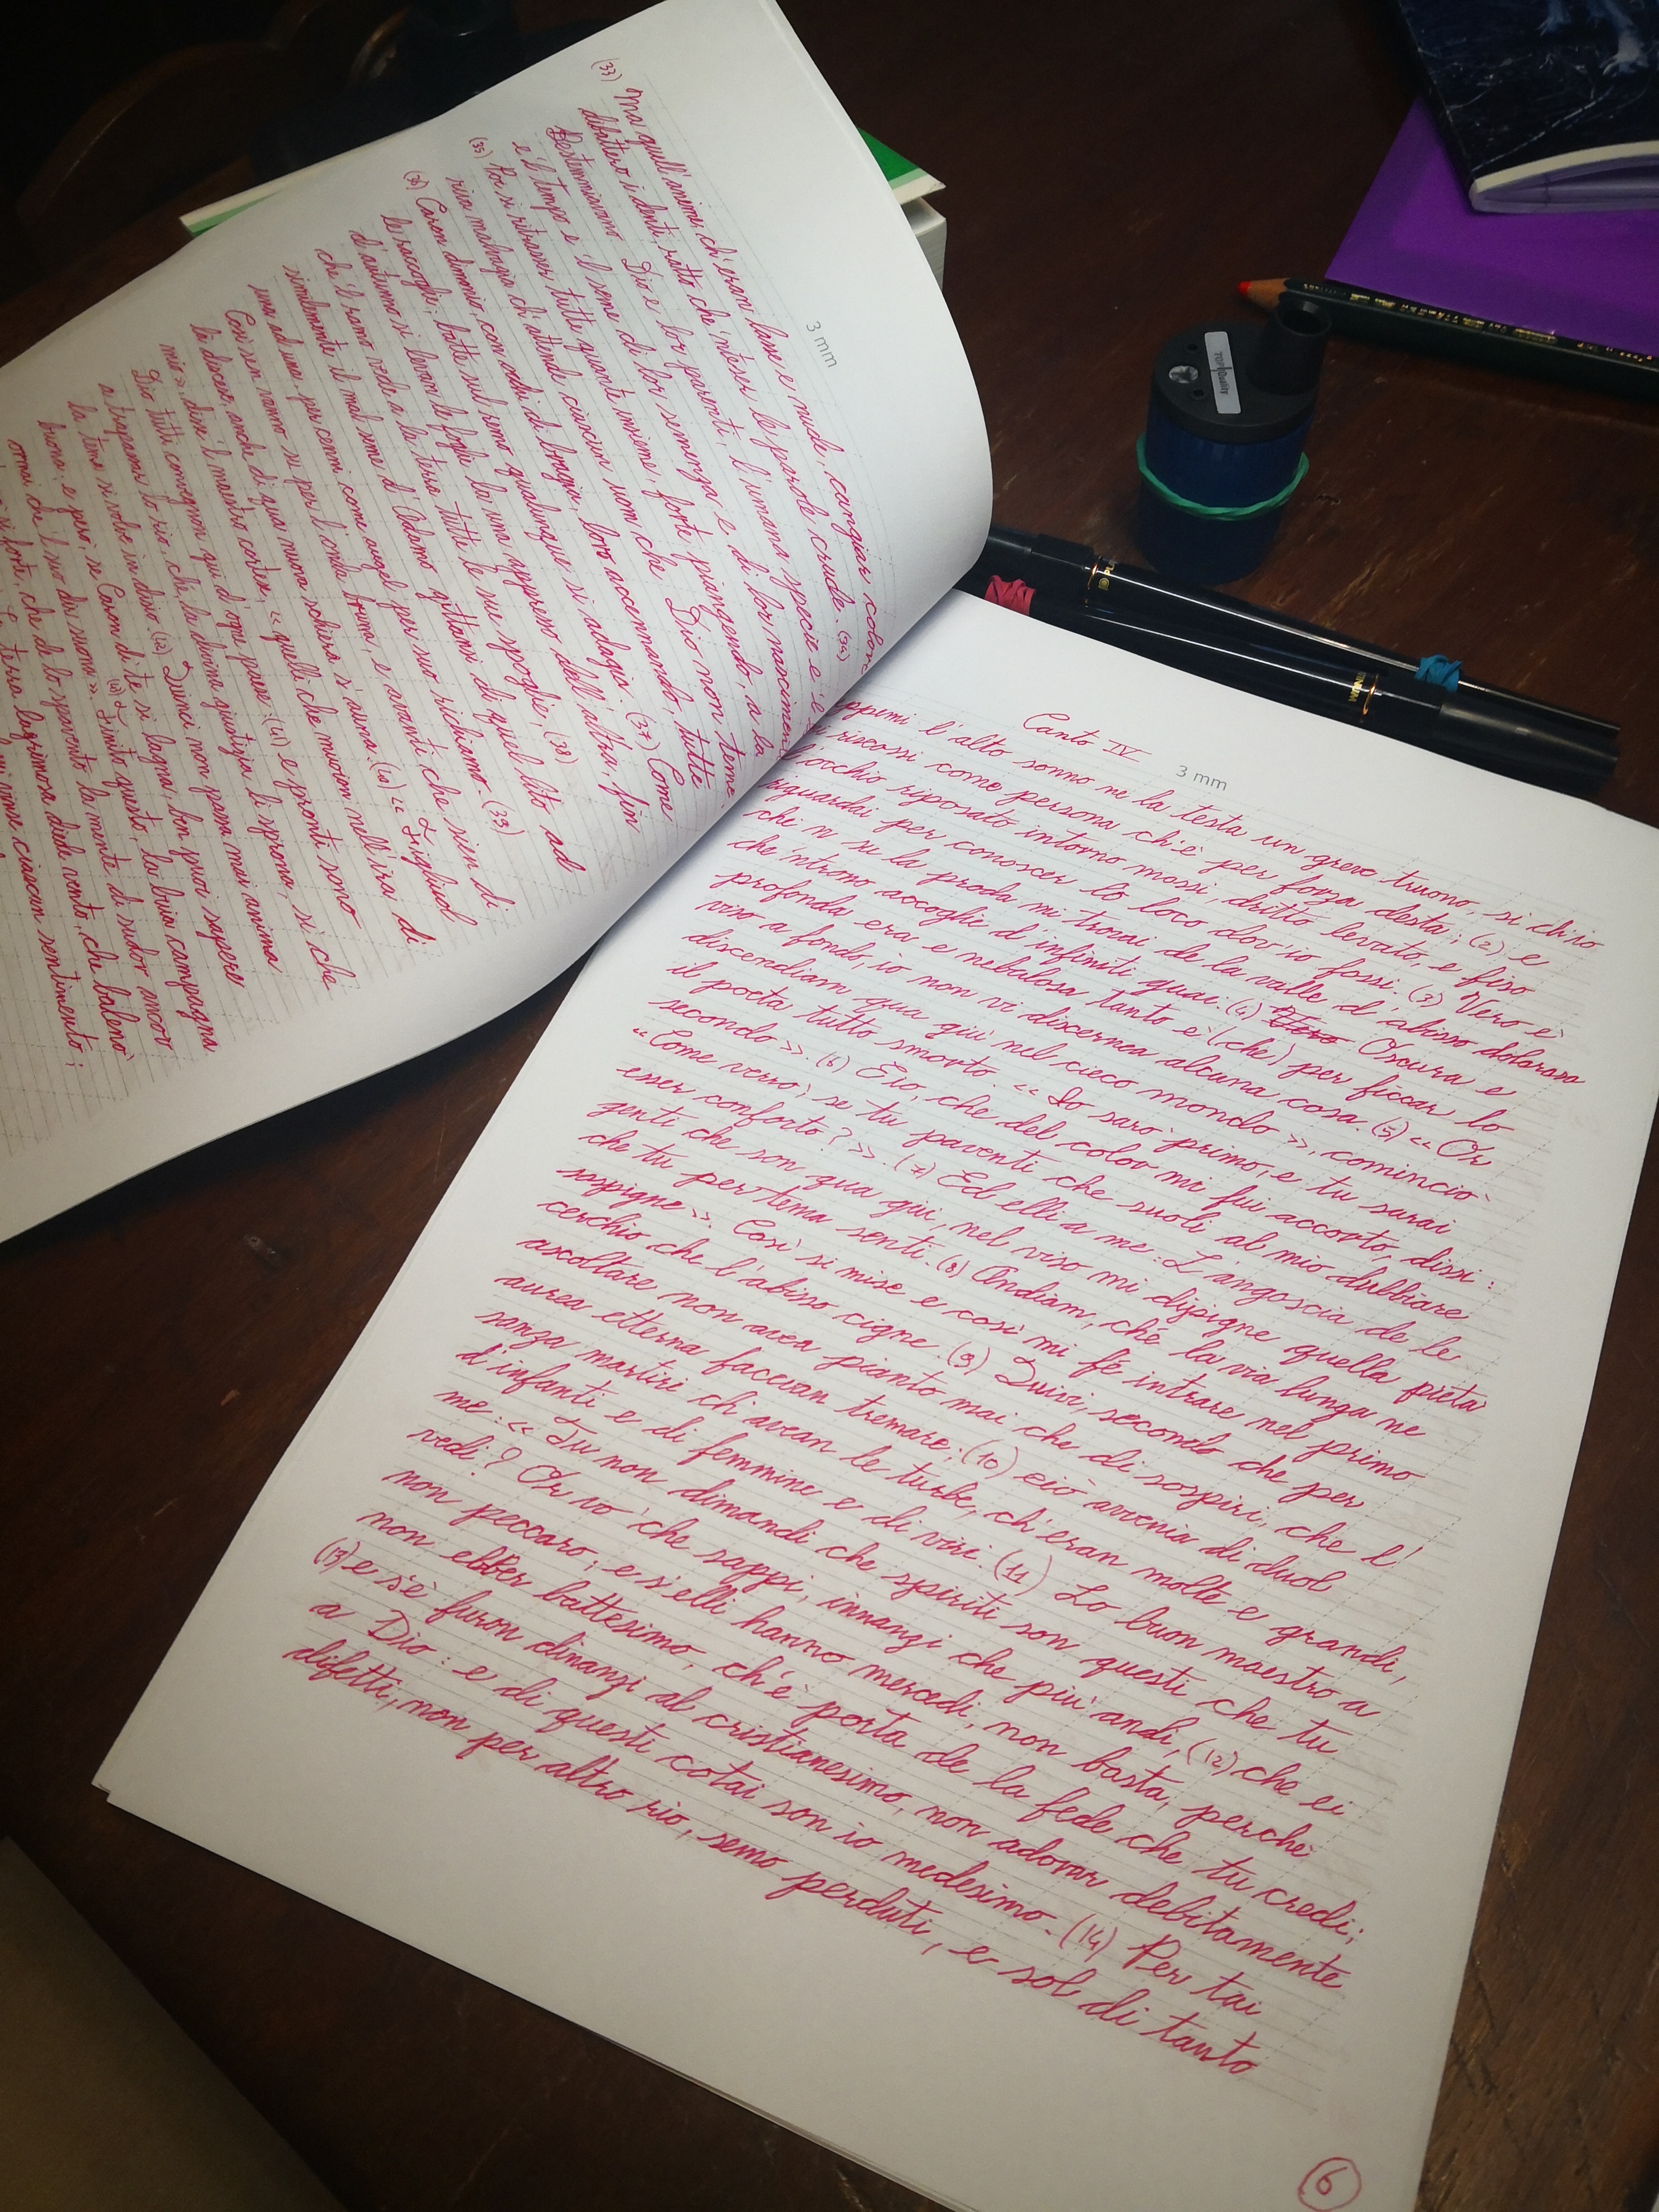 (33) Ma quell'anime, ch'eran lasse e nude, cangiar color
dibattero i denti, ratto che 'nteser le parole crude. (34)
Bestemmiavano Dio e lor parenti, l'umana spezie e 'l
e 'l tempo e 'l seme di lor semenza e di lor nascimenti
(35) Poi si ritrasser tutte quante insieme, forte piangendo, a la
riva malvagia ch'attende ciascun uom che Dio non teme.
(36) Caron dimonio, con occhi di bragia, loro accennando, tutte
le raccoglie; batte col remo qualunque si adagia. (37) Come
d'autunno si levan le foglie la una appresso dell'altra, fin
che 'l ramo vede a la terra tutte le sue spoglie, (38)
similemente il mal seme d'Adamo gittansi di quel lito ad
una ad una, per cenni come augel per suo richiamo. (39)
Così sen vanno su per l'onda bruna, e avanti che sien di
là discese, anche di qua nuova schiera s'auna. (40) « Figliuol
mio », disse 'l maestro cortese, « quelli che muoion nell'ira di
Dio tutti convegnon qui d'ogni paese: (41) e pronti sono
a trapassar lo rio, che la divina giustizia li sprona, sì che
la tema si volve in disio (42) Quinci non passa mai anima
buona; e però, se Caron di te si lagna, ben puoi sapere
omai che 'l suo dir suona ». Finito questo, la buia campagna
sì forte, che de lo spavento la mente di sudor ancor
La terra lagrimosa diede vento, che balenò
vinse ciascun sentimento;
3 mm
3 mm
Canto IV
l'alto sonno ne la testa un greve truono, sì ch'io
riscossi come persona ch'è per forza desta; (2) e
l'occhio riposato intorno mossi, dritto levato, e fiso
riguardai per conoscer lo loco dov'io fossi. (3) Vero è
che 'n su la proda mi trovai de la valle d'abisso dolorosa
che 'ntrono accoglie d'infiniti guai. (4) Oscura e
profonda era e nebulosa tanto è (che) per ficcar lo
viso a fondo, io non vi discernea alcuna cosa. (5) « Or
discendiam qua giù nel cieco mondo », cominciò
il poeta tutto smorto. « Io sarò primo, e tu sarai
secondo ». (6) E io, che del color mi fui accorto, dissi:
« Come verrò, se tu paventi che suoli al mio dubbiare
esser conforto? ». (7) Ed elli a me: L'angoscia de le
genti che son qua giù, nel viso mi dipigne quella pietà
che tu per tema senti. (8) Andiam, ché la via lunga ne
sospigne ». Così si mise e così mi fé intrare nel primo
cerchio che l'abisso cigne. (9) Quivi, secondo che per
ascoltare non avea pianto mai che di sospiri, che l'
aurea etterna facevan tremare; (10) ciò avvenia di duol
sanza martiri ch'avean le turbe, ch'eran molte e grandi,
d'infanti e di femmine e di viri. (11) Lo buon maestro a
me: « Tu non dimandi che spiriti son questi che tu
vedi? Or vo' che sappi, innanzi che più andi, (12) che ei
non peccaro; e s'elli hanno mercedi, non basta, perché
non ebber battesimo, ch'è porta de la fede che tu credi;
(13) e s'e' furon dinanzi al cristianesimo, non adorar debitamente
a Dio: e di questi cotai son io medesimo. (14) Per tai
difetti, non per altro rio, semo perduti, e sol di tanto
6
TOP Quality